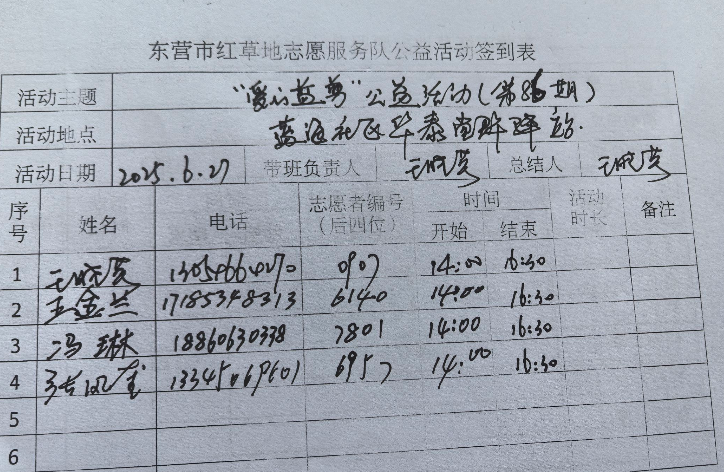 东营市红草地志愿服务队公益活动签到表
活动主题 “爱心益剪”公益活动(第86期)
活动地点 蓝海社区华泰
活动日期 2025.6.27 带班负责人 王晓英 总结人 王晓英
序号 姓名 电话 志愿者编号(后四位) 时间 开始 结束 活动时长 备注
1 王晓英 0907 14:00 16:30
2 王金兰 17185348313 6140 14:00 16:30
3 冯琳 18860630338 7801 14:00 16:30
4 6957 14:00 16:30
5
6